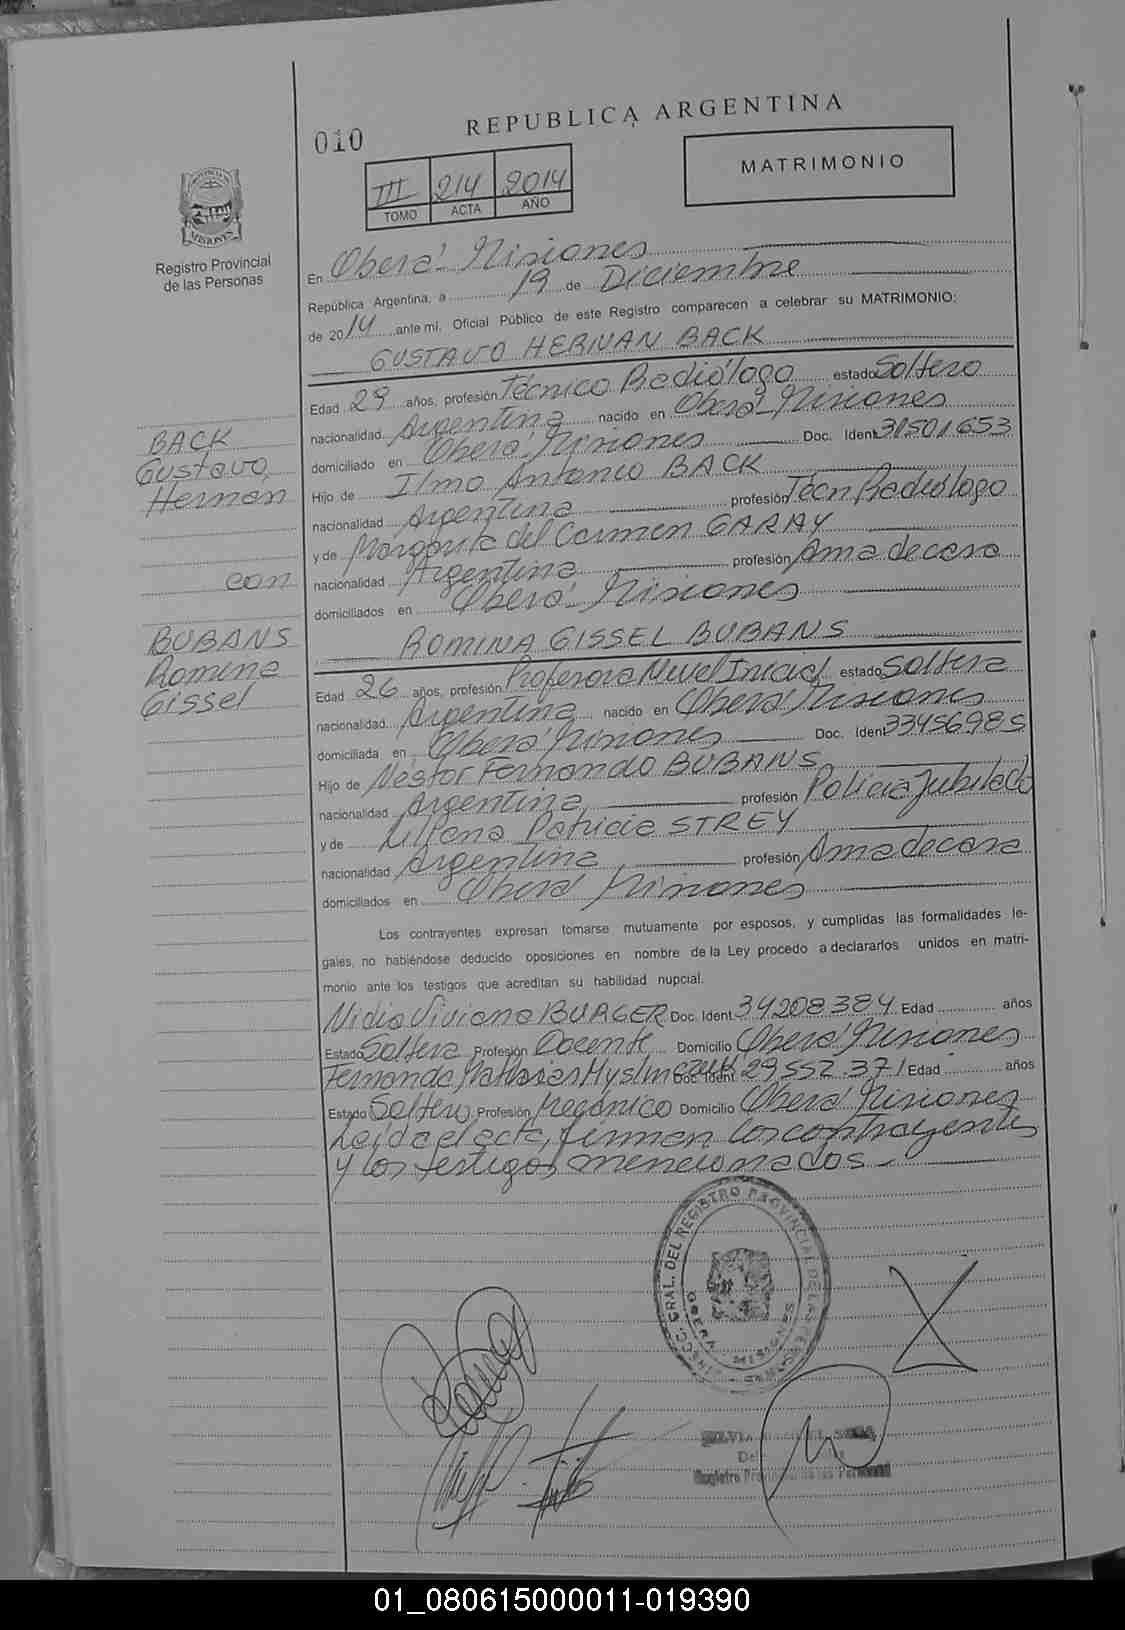 010
REPUBLICA ARGENTINA
MATRIMONIO
III 214 2014
TOMO ACTA AÑO
MISIONES
Registro Provincial
de las Personas
En Oberá - Misiones
República Argentina, a 19 de Diciembre
de 2014 ante mi, Oficial Público de este Registro comparecen a celebrar su MATRIMONIO:
GUSTAVO HERNAN BACK
Edad 29 años, profesión Técnico Radiólogo estado Soltero
nacionalidad Argentina nacido en Oberá - Misiones
domiciliado en Oberá Misiones Doc. Ident 31501653
Hijo de Ilmo Antonio BACK
nacionalidad Argentina profesión Técn Radiólogo
y de Margarita del Carmen GARAY
nacionalidad Argentina profesión Ama de casa
domiciliados en Oberá - Misiones
BACK
Gustavo
Hernan
con
BUBANS
Romina
Gissel
ROMINA GISSEL BUBANS
Edad 26 años, profesión Profesora Nivel Inicial estado Soltera
nacionalidad Argentina nacido en Oberá Misiones
domiciliada en Oberá Misiones Doc. Ident 33456985
Hijo de Néstor Fernando BUBANS
nacionalidad Argentina profesión Policia Jubilado
y de Patricia STREY
nacionalidad Argentina profesión Ama de casa
domiciliados en Oberá Misiones
Los contrayentes expresan tomarse mutuamente por esposos, y cumplidas las formalidades le-
gales, no habiéndose deducido oposiciones en nombre de la Ley procedo a declararlos unidos en matri-
monio ante los testigos que acreditan su habilidad nupcial.
Nidia Viviana BURGER Doc. Ident. 34208384 Edad años
Estado Soltera Profesión Docente Domicilio Oberá Misiones
Fernando Doc. Ident. 29.552.371 Edad años
Estado Soltero Profesión Mecánico Domicilio Oberá Misiones
Leida el acta, firman los contrayentes
y los testigos mencionados.-
DIRECC. GRAL. DEL REGISTRO PROVINCIAL DE LAS PERSONAS
OBERA MISIONES
Registro Provincial de las Personas
01_080615000011-019390